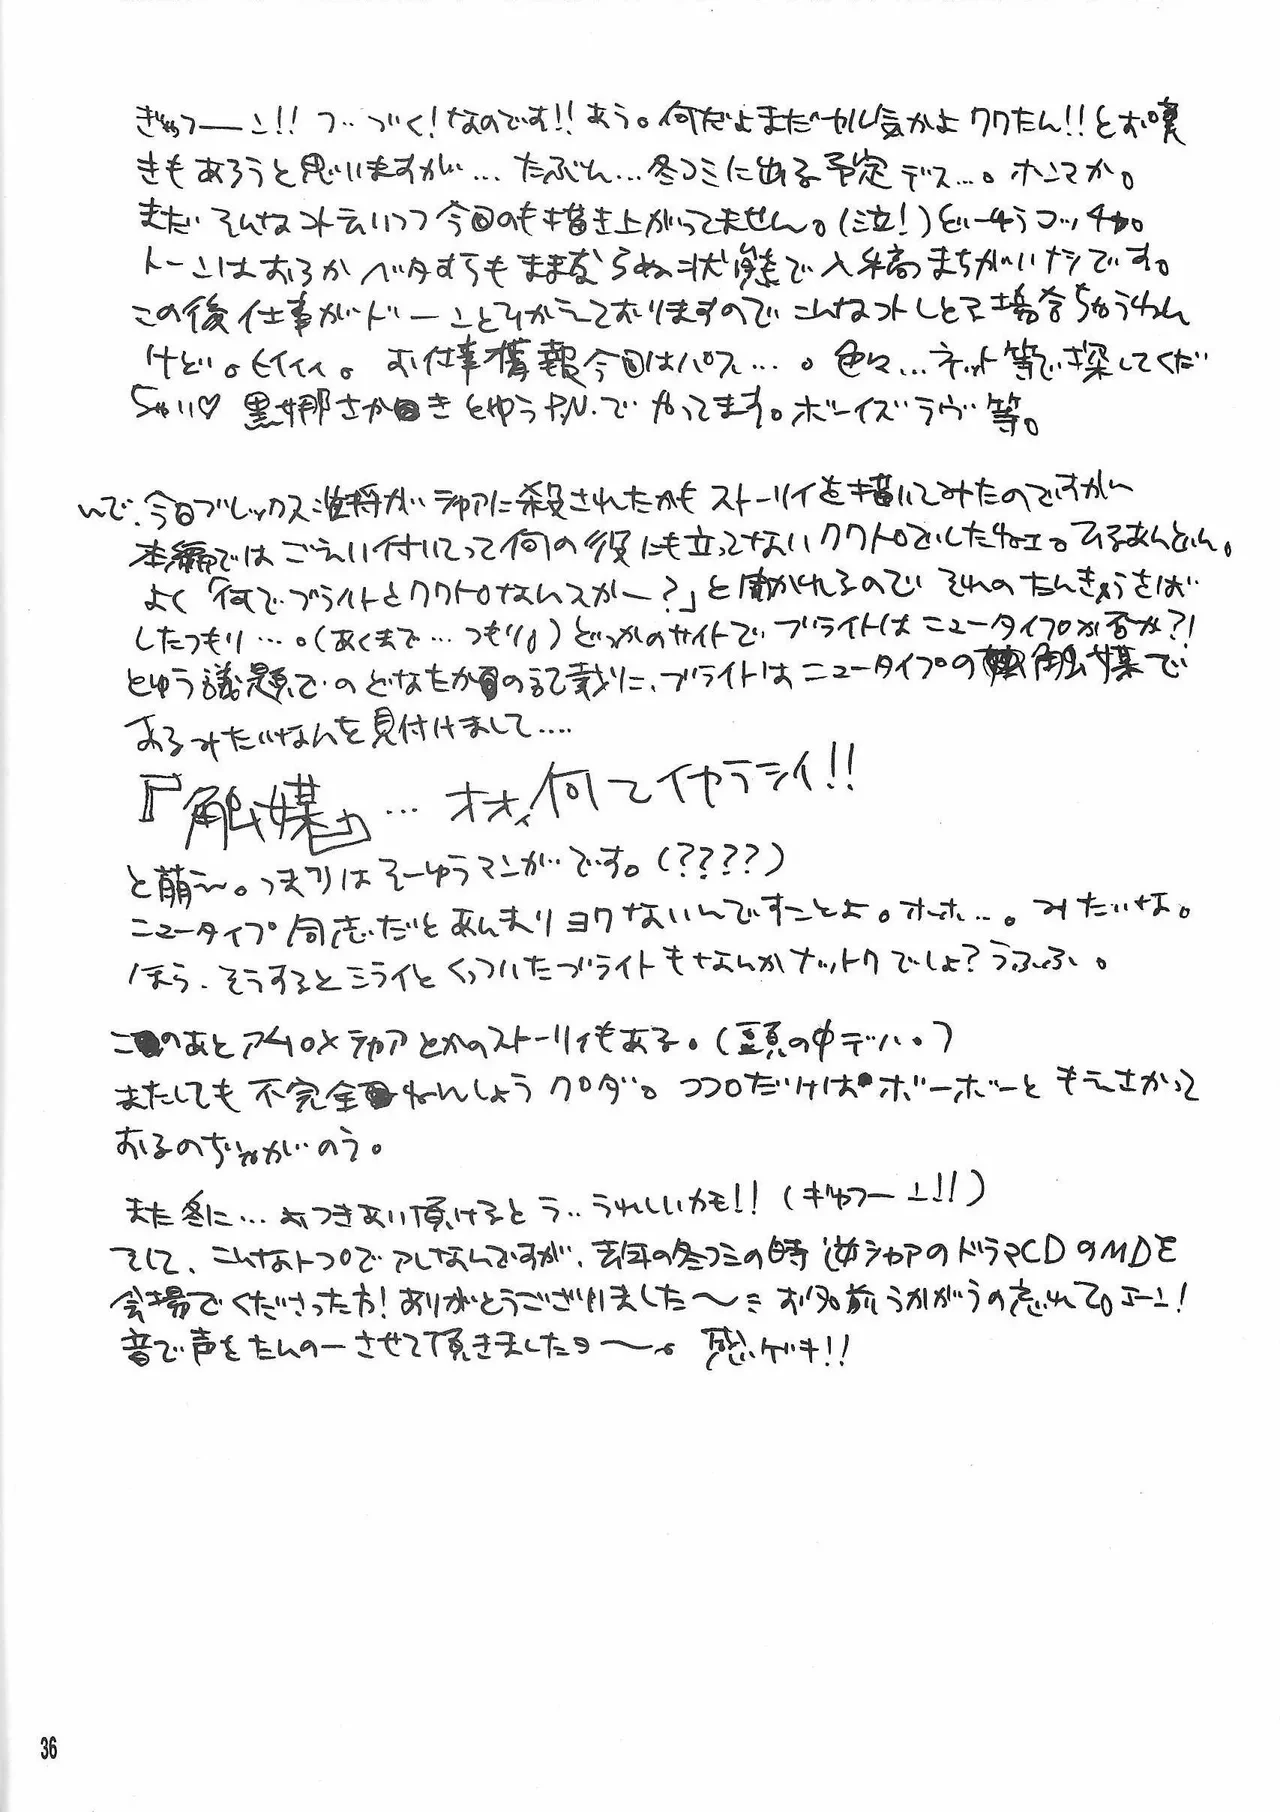 ぎゅつーーン!! つ‥づく!なのです!!あう。何だよまだヤル気かよクワたん!!とお嘆
きもあろうと思いますが…たぶん…冬コミに出る予定デス…。ホンマか。
まだそんなコト云いつつ今回のも描き上がってません。(泣!)どーゆうコッチャ。
トーンはおろかベタすらもままならぬ状態で入稿まちがいナシです。
この後仕事がドーーンとひかえておりますのでこんなコトしとる場合ちゃうねん
けど。ヒイィィ。 お仕事情報今回はパス…。色々…ネット等で探してくだ
ちゃい♡ 黒娜さかきとゆうP.N.でやってます。ボーイズラヴ等。
んで、今日ブレックス准将がシャアに殺されたかもストーリィを描いてみたのですがー
本編ではごえい付いてって何の役にも立ってないクワトロでしたねェ。てるあんどん。
よく「何でブライトとクワトロなんスかー?」と聞かれるのでそれのたんきゅうをば
したつもり…。(あくまで…つもり。)どっかのサイトでブライトはニュータイプか否か?!
とゆう議題でのどなたかの記載に、ブライトはニュータイプの触媒で
あるみたいなんを見付けまして‥‥
『触媒』… オオィ何てイヤラシイ!!
と萌え〜。つまりはそーゆうマンガです。(????)
ニュータイプ同志だとあんまりヨクないんですことよ。ホホ…。みたいな。
ほら、そうするとミライとくっついたブライトもなんかナットクでしょ?うふふ。
このあとアムロ×シャアとかのストーリィもある。(頭の中デハ。)
またしても不完全ねんしょうクロダ。ココロだけはボーボーともえさかって
おるのぢゃがのう。
また冬に…おつきあい頂けるとう‥うれしいカモ!! (ぎゅつーーン!!)
そして、こんなトコロでアレなんですが、去年の冬コミの時逆シャアのドラマCDのMDを
会場でくださった方!ありがとうございました〜 お名前うかがうの忘れて。エーン!
音で声をたんのーさせて頂きましたヨ〜〜。 感ゲキ!!
36